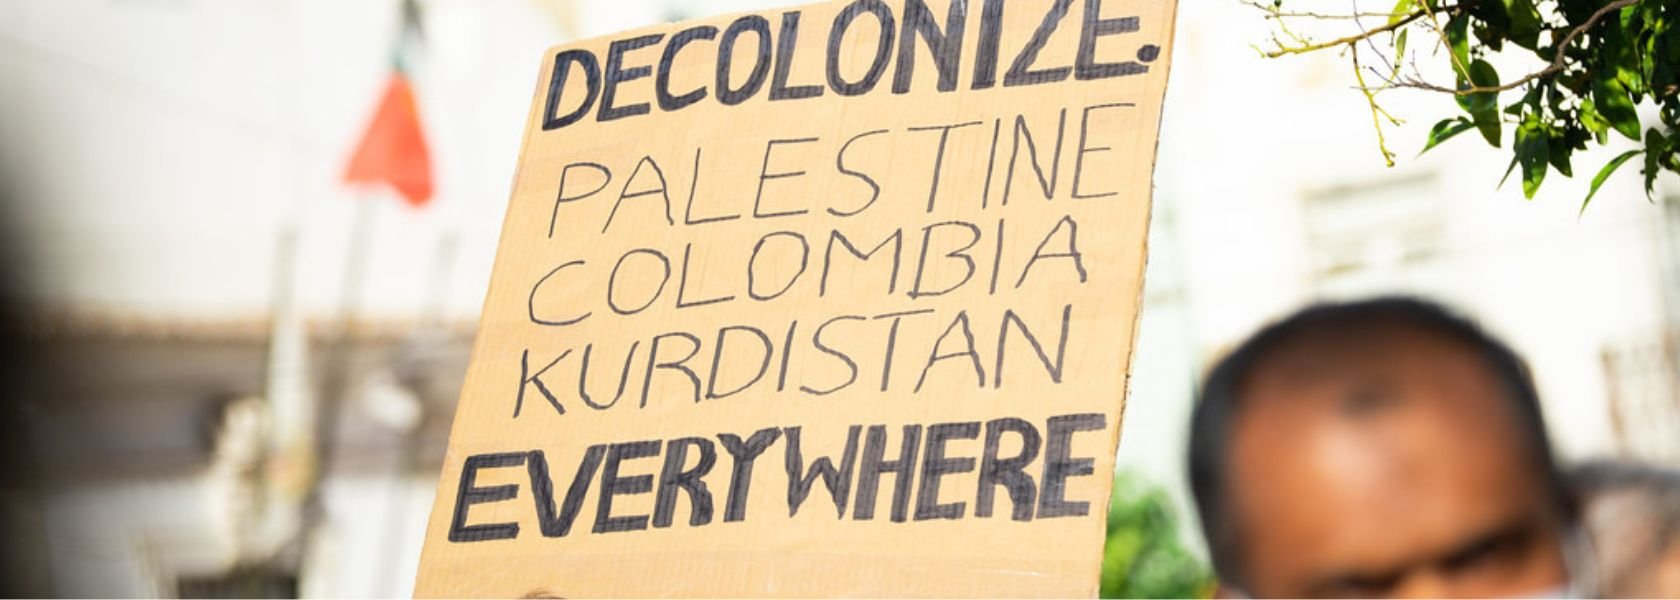 DECOLONIZE.
PALESTINE
COLOMBIA
KURDISTAN
EVERYWHERE